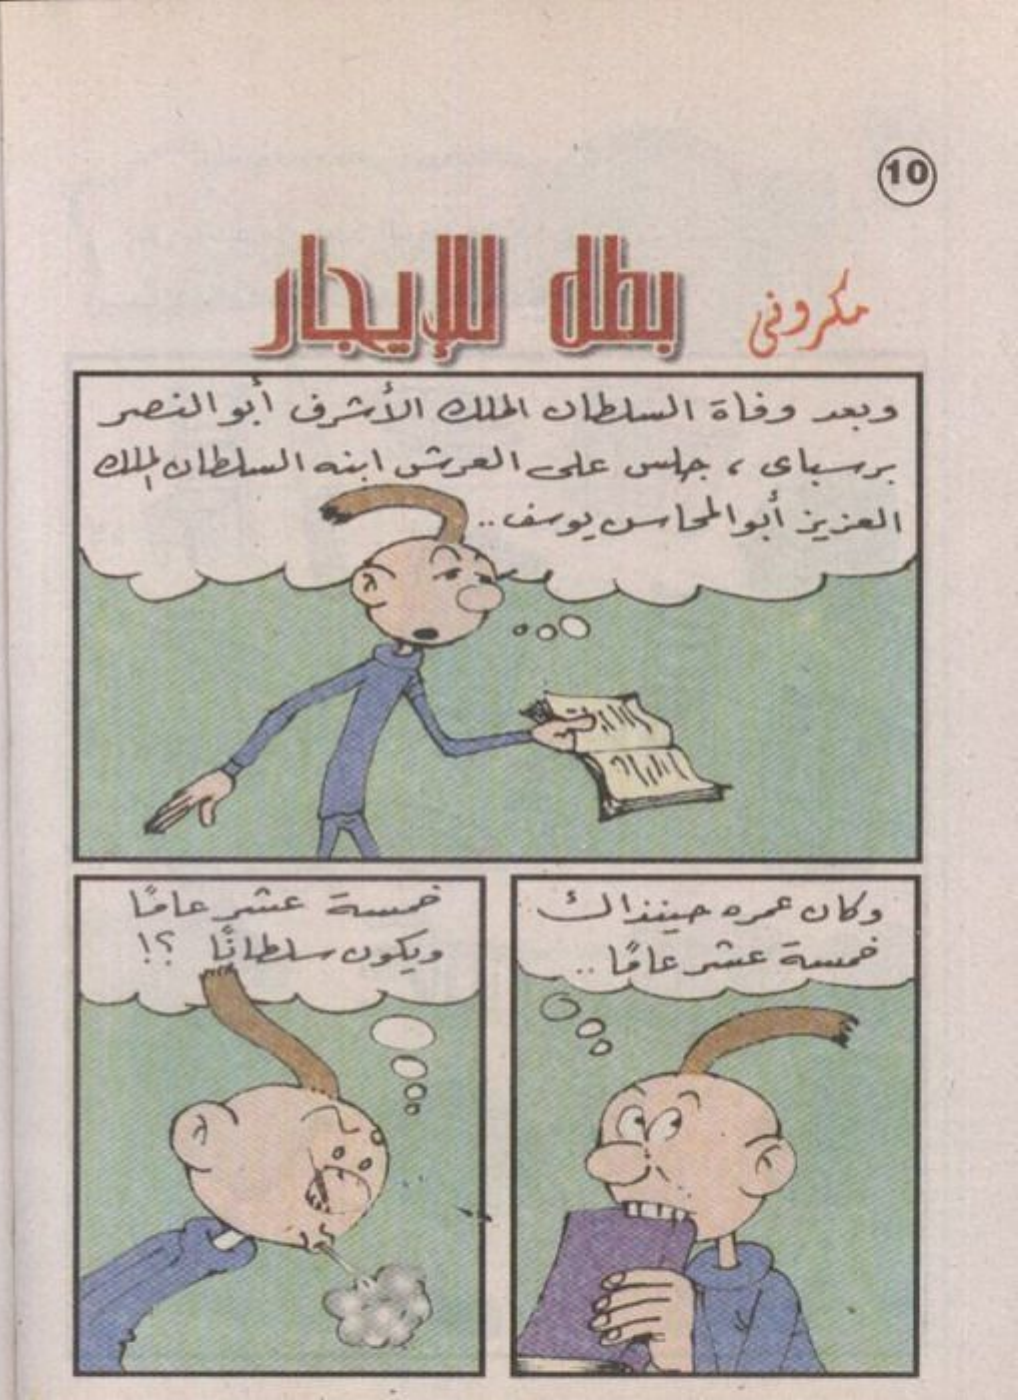 10
مكرونى
بطل للإيجار
وبعد وفاة السلطان الملك الأشرف أبو النصر
برسباى ، جلس على العرش ابنه السلطان الملك
العزيز أبو المحاسن يوسف ..
وكان عمره حينذاك
خمسة عشر عامًا ..
خمسة عشر عامًا
ويكون سلطانًا ؟!